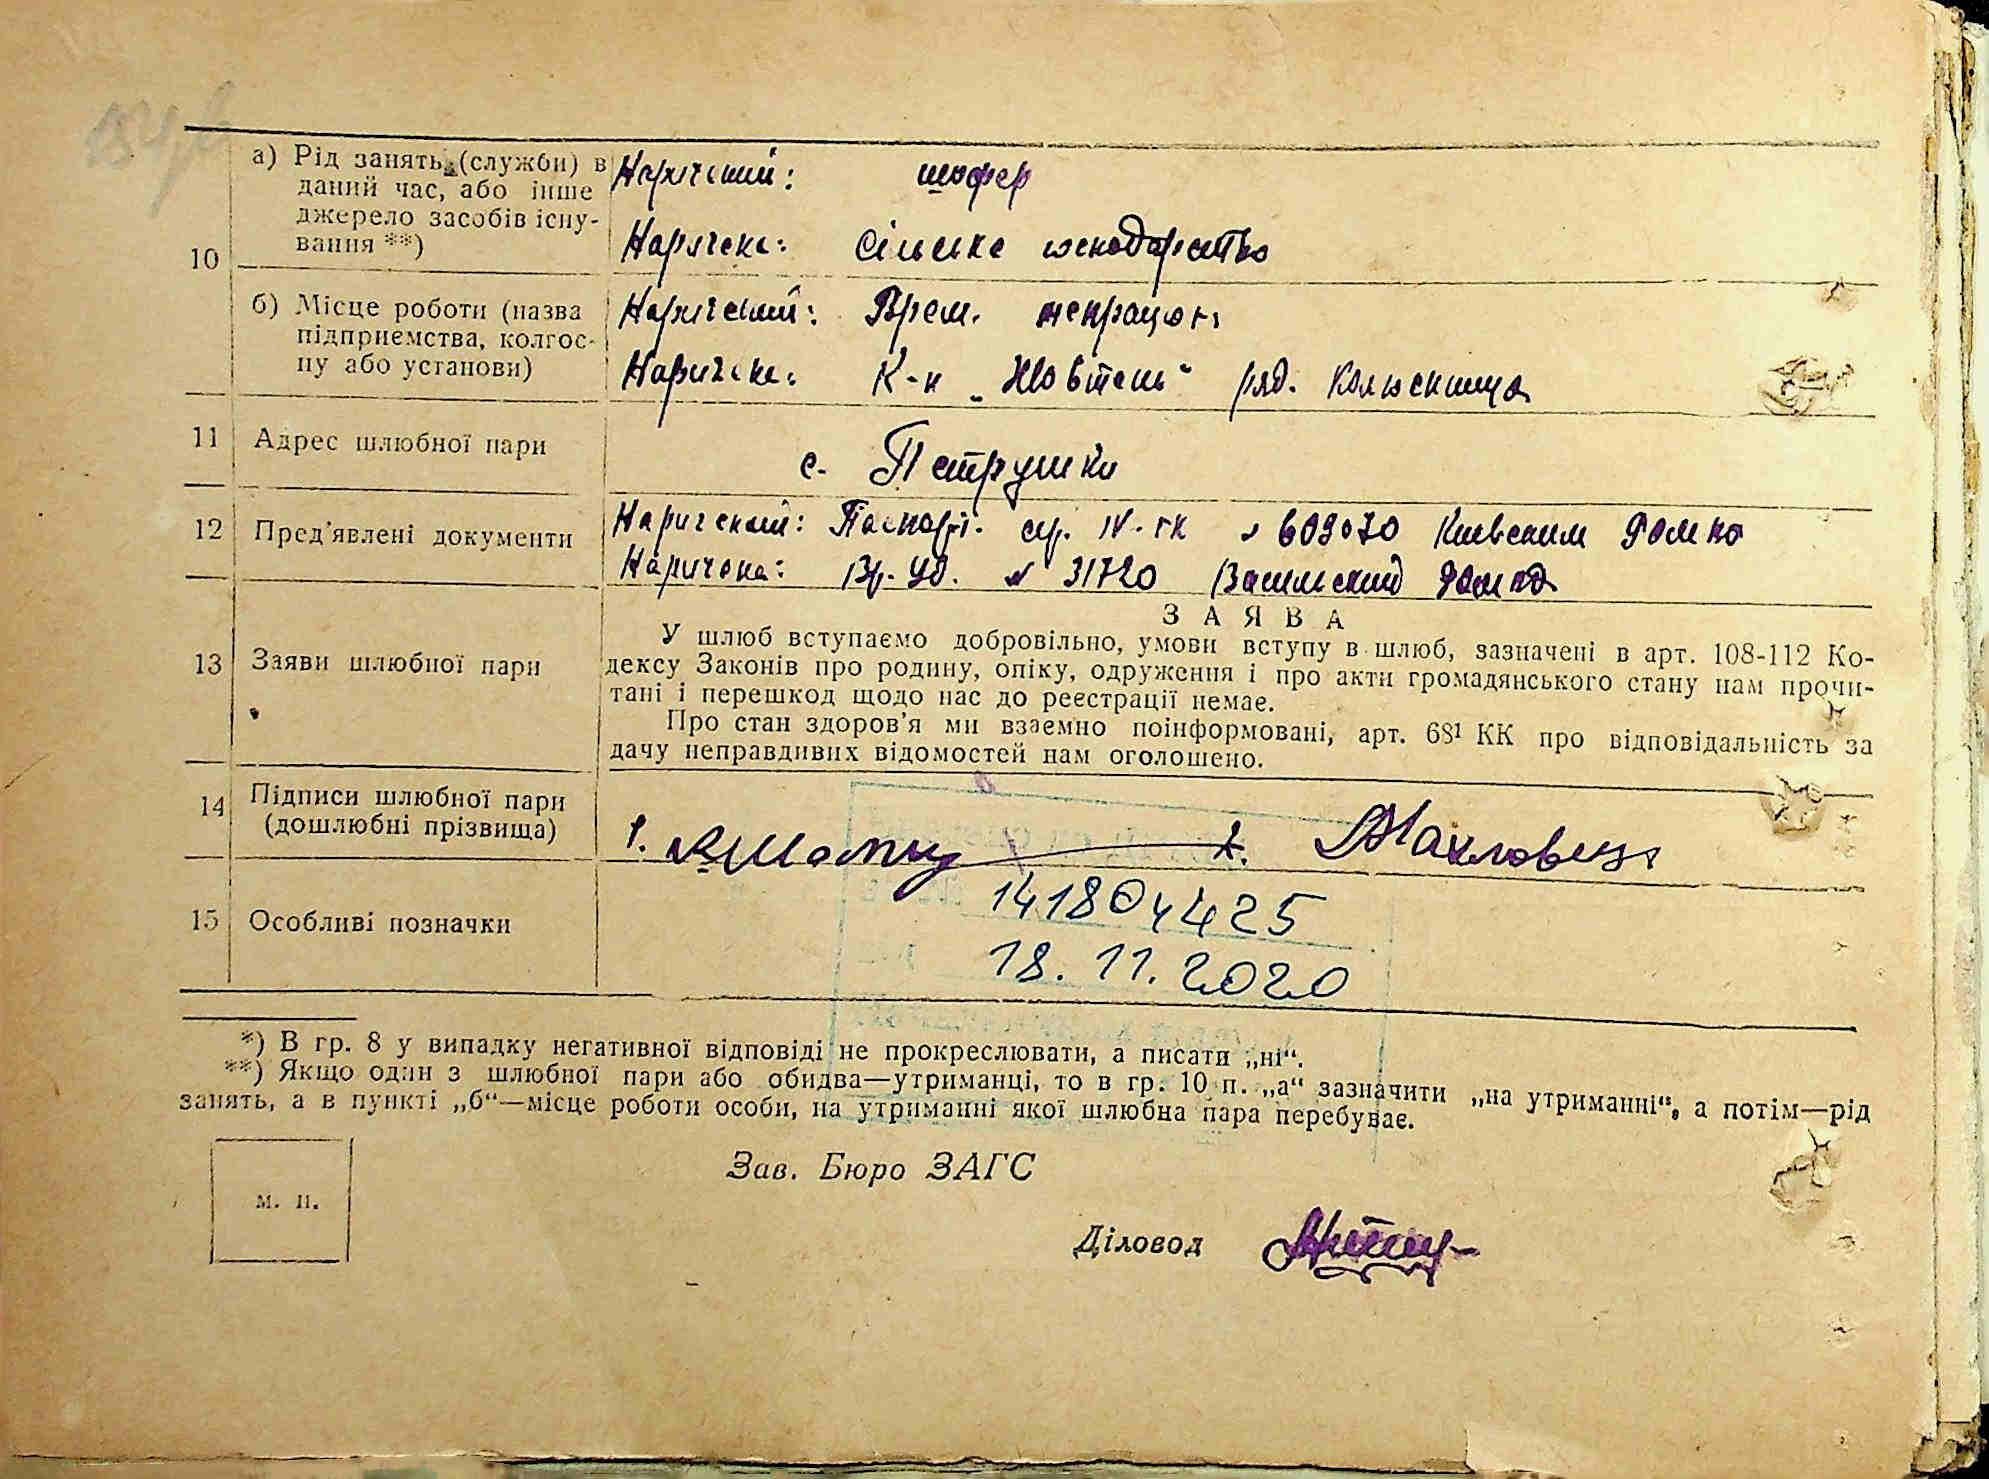 а) Рід занять (служби) в
даний час, або інше
джерело засобів існу-
вання **)
Наречений: шофер
Наречена: Сільське господарство
10
б) Місце роботи (назва
підприємства, колгос-
пу або установи)
Наречений: Врем. непрацює
Наречена: К-п „Жовтень“ ряд. колгоспниця
11 Адрес шлюбної пари
с. Петрушки
12 Пред'явлені документи
Наречений: Паспорт. ср. IV-ГК № 609070 Киевским
Наречена: Вр. Уд. № 31720
ЗАЯВА
13 Заяви шлюбної пари
У шлюб вступаємо добровільно, умови вступу в шлюб, зазначені в арт. 108-112 Ко-
дексу Законів про родину, опіку, одруження і про акти громадянського стану нам прочи-
тані і перешкод щодо нас до реєстрації немає.
Про стан здоров'я ми взаємно поінформовані, арт. 68¹ КК про відповідальність за
дачу неправдивих відомостей нам оголошено.
14 Підписи шлюбної пари
(дошлюбні прізвища)
1. 2.
15 Особливі позначки
141804425
18.11.2020
*) В гр. 8 у випадку негативної відповіді не прокреслювати, а писати „ні“.
**) Якщо один з шлюбної пари або обидва—утриманці, то в гр. 10 п. „а“ зазначити „на утриманні“, а потім—рід
занять, а в пункті „б“—місце роботи особи, на утриманні якої шлюбна пара перебуває.
м. п.
Зав. Бюро ЗАГС
Діловод